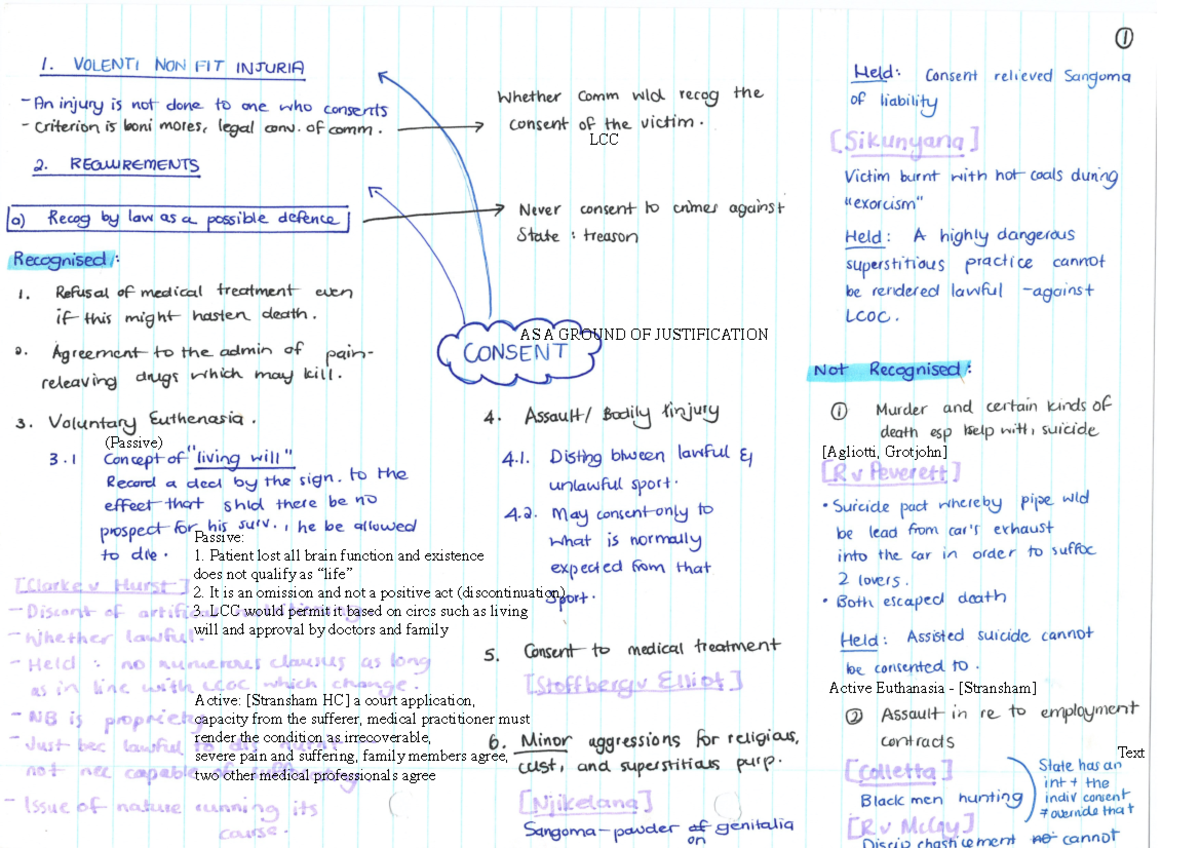 ①
1. VOLENTI NON FIT INJURIA
- An injury is not done to one who consents
- Criterion is boni mores, legal conv. of comm.
Whether Comm wld recog the
consent of the victim.
LCC
2. REQUIREMENTS
a) Recog by law as a possible defence
Never consent to crimes against
State : treason
Recognised:
1. Refusal of medical treatment even
if this might hasten death.
2. Agreement to the admin of pain-
releaving drugs which may kill.
3. Voluntary Euthenasia.
(Passive)
3.1 Concept of "living will"
Record a decl by the sign. to the
effect that shld there be no
prospect for his surv., he be allowed
to die.
Passive:
1. Patient lost all brain function and existence
does not qualify as “life”
2. It is an omission and not a positive act (discontinuation)
3. LCC would permit it based on circs such as living
will and approval by doctors and family
[Clarke v Hurst]
- Discont of artificial
- Whether lawful.
- Held : no numerous clausus as long
as in line with LCOC which change.
- NB is propriety
- Just bec lawful to
not nec capable of
- Issue of nature running its
course.
Active: [Stransham HC] a court application,
capacity from the sufferer, medical practitioner must
render the condition as irrecoverable,
severe pain and suffering, family members agree,
two other medical professionals agree
AS A GROUND OF JUSTIFICATION
CONSENT
4. Assault/ Bodily Injury
4.1. Disting btween lawful &
unlawful sport.
4.2. May consent only to
what is normally
expected from that
sport.
5. Consent to medical treatment
[Stoffberg v Elliot]
6. Minor aggressions for religious,
cust, and superstitious purp.
[Njikelana]
Sangoma - powder of genitalia
on
Held: Consent relieved Sangoma
of liability
[Sikunyana]
Victim burnt with hot coals during
"exorcism"
Held: A highly dangerous
superstitious practice cannot
be rendered lawful - against
LCOC.
Not Recognised:
① Murder and certain kinds of
death esp help with suicide
[Agliotti, Grotjohn]
[R v Peverett]
• Suicide pact whereby pipe wld
be lead from car's exhaust
into the car in order to suffoc
2 lovers.
• Both escaped death
Held: Assisted suicide cannot
be consented to.
Active Euthanasia - [Stransham]
② Assault in re to employment
contracts
Text
[Colletta]
Black men hunting
State has an
int + the
indiv consent
≠ override that
[R v McCoy]
Discip chasticement no cannot